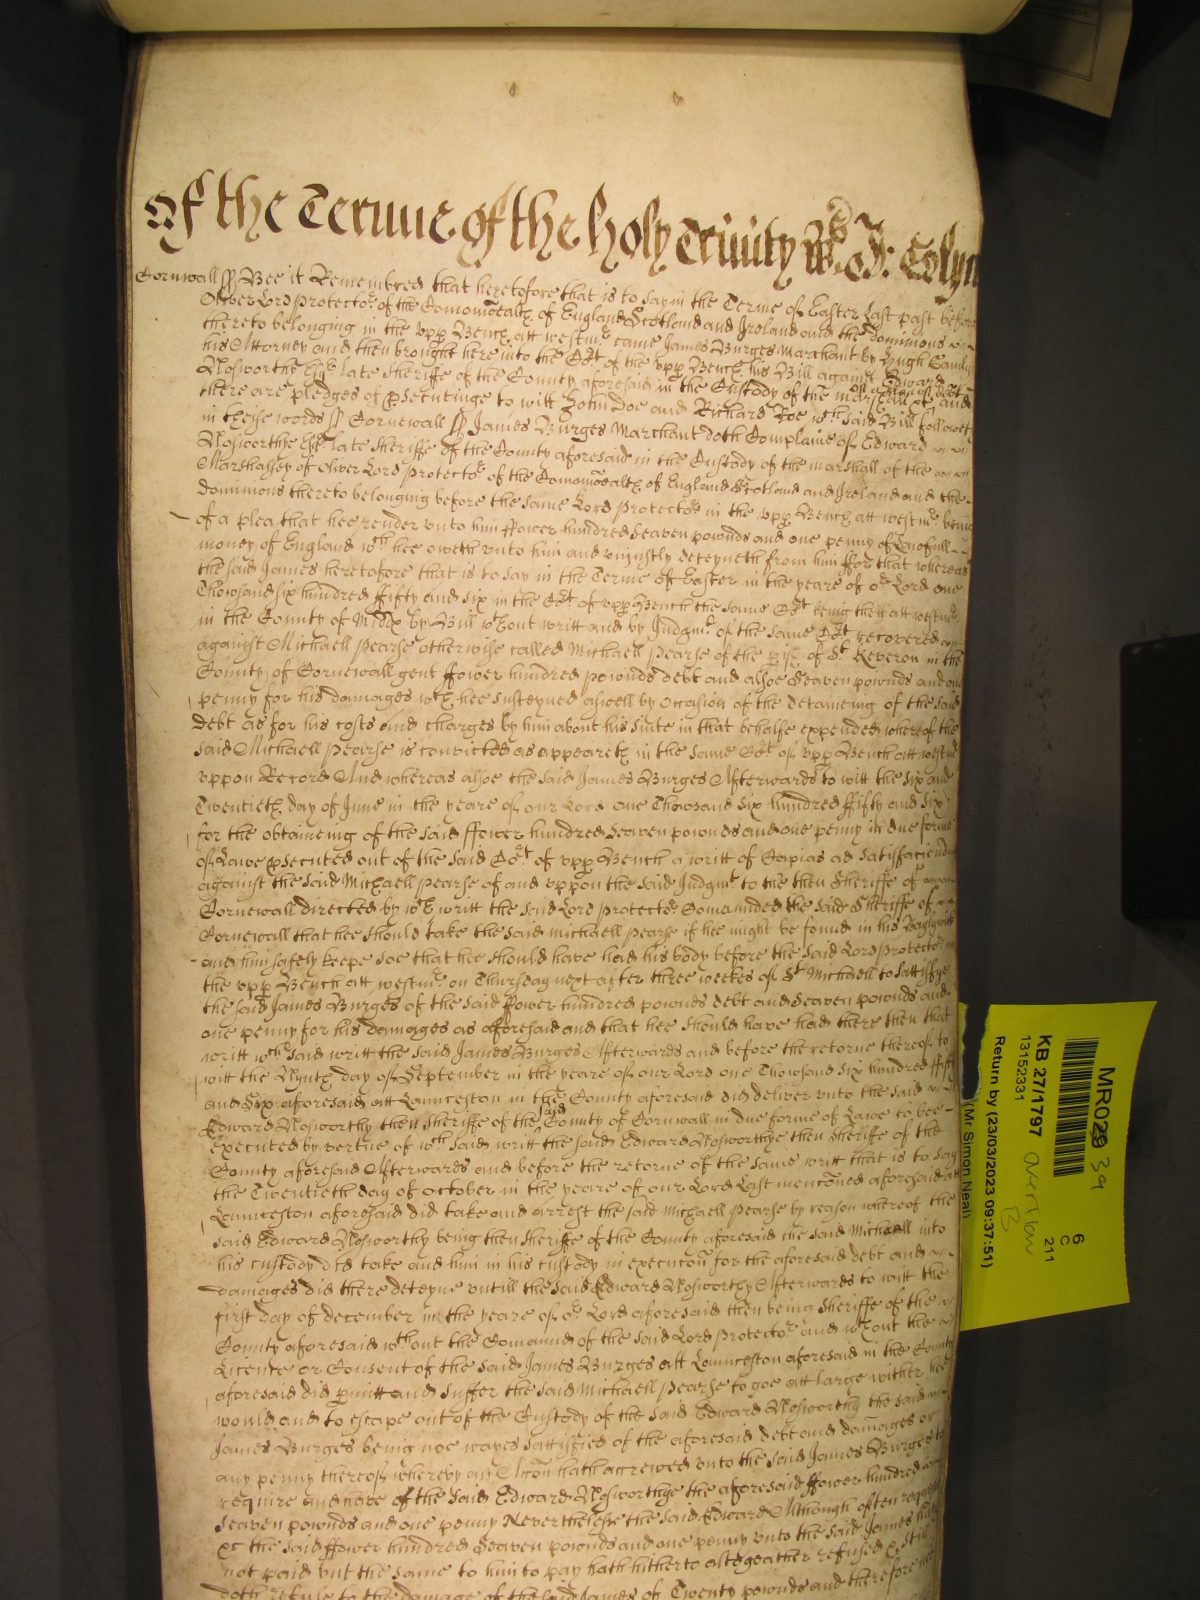 Of the Terme of the holy Trinity
Cornwall ss Bee it Remembred that heretofore that is to say in the Terme of Easter last past before
Oliver Lord Protector of the Comonwealth of England Scotland and Ireland and the dominions
thereto belonging in the vpp Bench att westmr came James Burges Marchant by Hugh
his Attorney and then brought here into the Cort of the vpp Bench his Bill against Edward
Nosworthy Esqr late Sheriffe of the County aforesaid in the Custody of the marshall &c and
there are pledges of psecutinge to witt John Doe and Richard Roe wch said Bill followeth
in theise words ss Cornewall ss James Burges Marchant doth Complaine of Edward
Nosworthye Esqr late Sheriffe of the County aforesaid in the Custody of the marshall of the
Marshalsey of Oliver Lord Protector of the Comonwealth of England Scotland and Ireland and the
dominions thereto belonging before the same Lord Protector in the vpp Bench att westmr being
of a plea that hee render vnto him ffower hundred Seaven pownds and one penny of Lawfull
money of England wch hee oweth vnto him and vniustly deteyneth from him ffor that whereas
the said James heretofore that is to say in the Terme of Easter in the yeare of or Lord one
Thowsand six hundred ffifty and six in the Cort of vpp Bench the same Cort being then att westmr
in the County of Middx by Bill wthout writt and by Judgmt of the same Cort recovered
against Michaell Pearse otherwise called Michaell Pearse of the pish of St Keveron in the
County of Cornewall gent ffower hundred pownds debt and alsoe Seaven pownds and one
penny for his damages wch hee susteyned aswell by Occasion of the detaineing of the said
debt as for his costs and charges by him about his suite in that behalfe expended whereof the
said Michaell Pearse is convicted as appeareth in the same Cort of vpp Bench att westmr
vppon Record And whereas alsoe the said James Burges Afterwards to witt the six and
Twentieth day of June in the yeare of our Lord one Thowsand six hundred ffifty and six
for the obtaineing of the said ffower hundred Seaven pownds and one penny in due forme
of Lawe psecuted out of the said Cort of vpp Bench a writt of Capias ad Satisfaciendum
against the said Michaell Pearse of and vppon the said Judgmt to the then Sheriffe of
Cornewall directed by wch writt the said Lord Protector Comanded the said Sheriffe of
Cornewall that hee should take the said Michaell Pearse if hee might be found in his
and him safely keepe soe that hee should have had his body before the said Lord Protector in
the vpp Bench att westmr on Thursday next after three weekes of St Michaell to sattisfye
the said James Burges of the said ffower hundred pownds debt and Seaven pownds and
one penny for his damages as aforesaid and that hee should have had there then that
writt wch said writt the said James Burges Afterwards and before the retorne thereof to
witt the Nynth day of September in the yeare of our Lord one Thowsand six hundred ffifty
and Six aforesaid att Launceston in the County aforesaid did deliver vnto the said
Edward Nosworthy then Sheriffe of the said County of Cornwall in due forme of Lawe to bee
executed by vertue of wch said writt the said Edward Nosworthye then Sheriffe of the
County aforesaid Afterwards and before the retorne of the same writt that is to say
the Twentieth day of October in the yeare of our Lord last mencōned aforesaid att
Launceston aforesaid did take and arrest the said Michaell Pearse by reason whereof the
said Edward Nosworthy being then Sheriffe of the County aforesaid the said Michaell into
his custody did take and him in his custody in execucōn for the aforesaid debt and
damages did there deteyne vntill the said Edward Nosworthy Afterwards to witt the
first day of december in the yeare of or Lord aforesaid then being Sheriffe of the
County aforesaid wthout the Comannd of the said Lord Protector and wthout the
Licence or Consent of the said James Burges att Launceston aforesaid in the County
aforesaid did pmitt and suffer the said Michaell Pearse to goe att large wither hee
would and to escape out of the Custody of the said Edward Nosworthy the said
James Burges being noe wayes sattisfied of the aforesaid debt and damages or
any penny thereof whereby an Accōn hath accrewed vnto the said James Burges to
require and have of the said Edward Nosworthye the aforesaid ffower hundred
Seaven pownds and one penny Neverthelesse the said Edward Although often requested
&c the said ffower hundred Seaven pownds and one penny vnto the said James hath
not paid but the same to him to pay hath hitherto altogeather refused & still
doth refuse to the damage of the said James of Twenty pownds and therefore
MR029 39
6
C
211
KB 27/1797 overflow
B
13152331
Return by (23/03/2023 09:37:51)
(Mr Simon Neal)